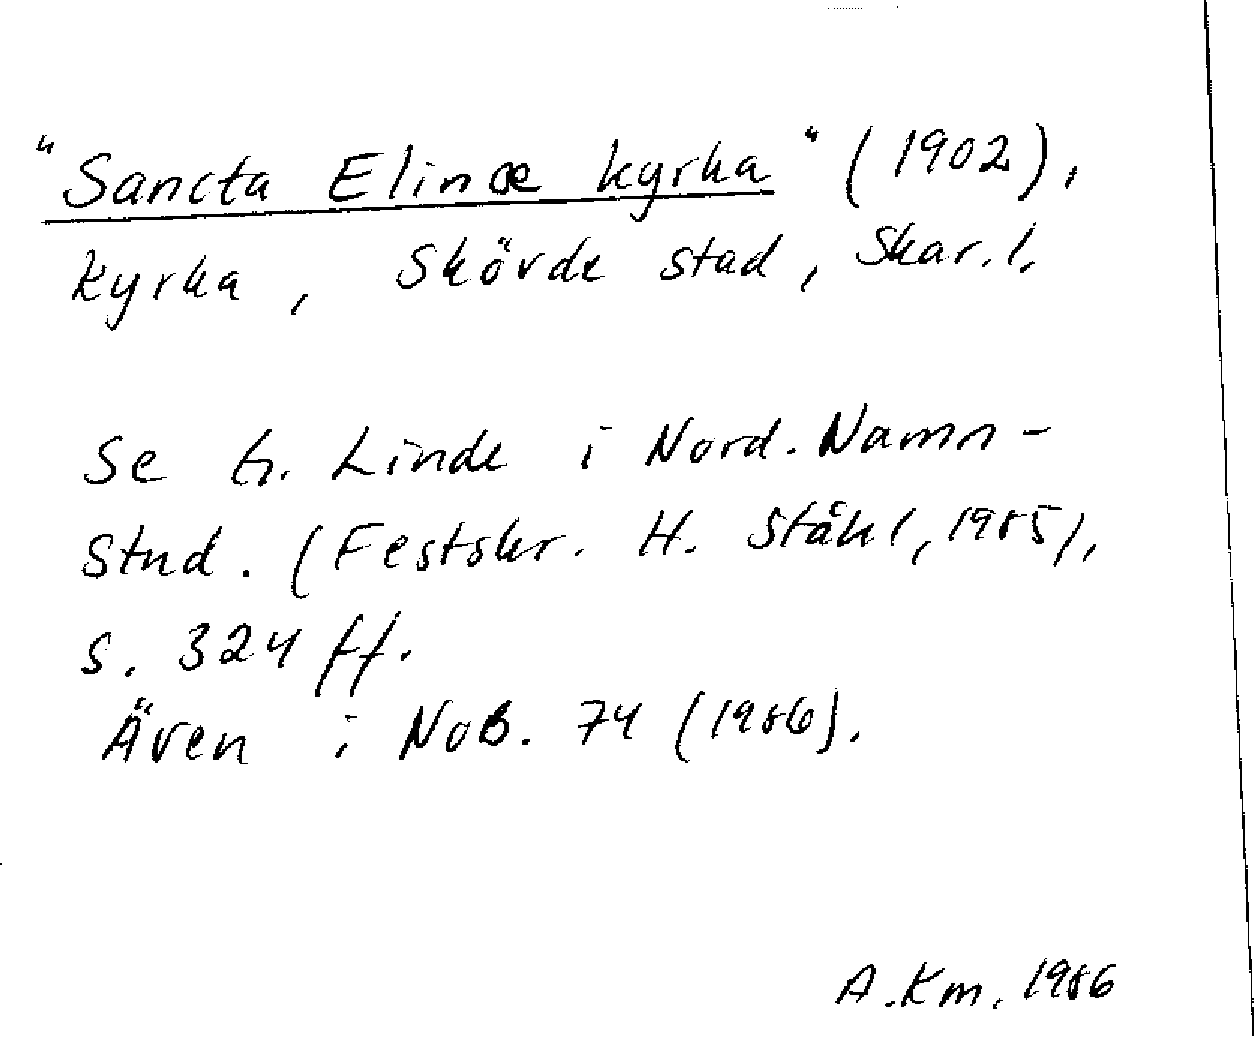 "Sancta Elinæ kyrka" (1902),
kyrka, Skövde stad, Skar. l.
Se G. Linde i Nord. Namn-
stud. (Festskr. H. Ståhl, 1985),
s. 324 ff.
Även i NoB. 74 (1986).
A. Km. 1986